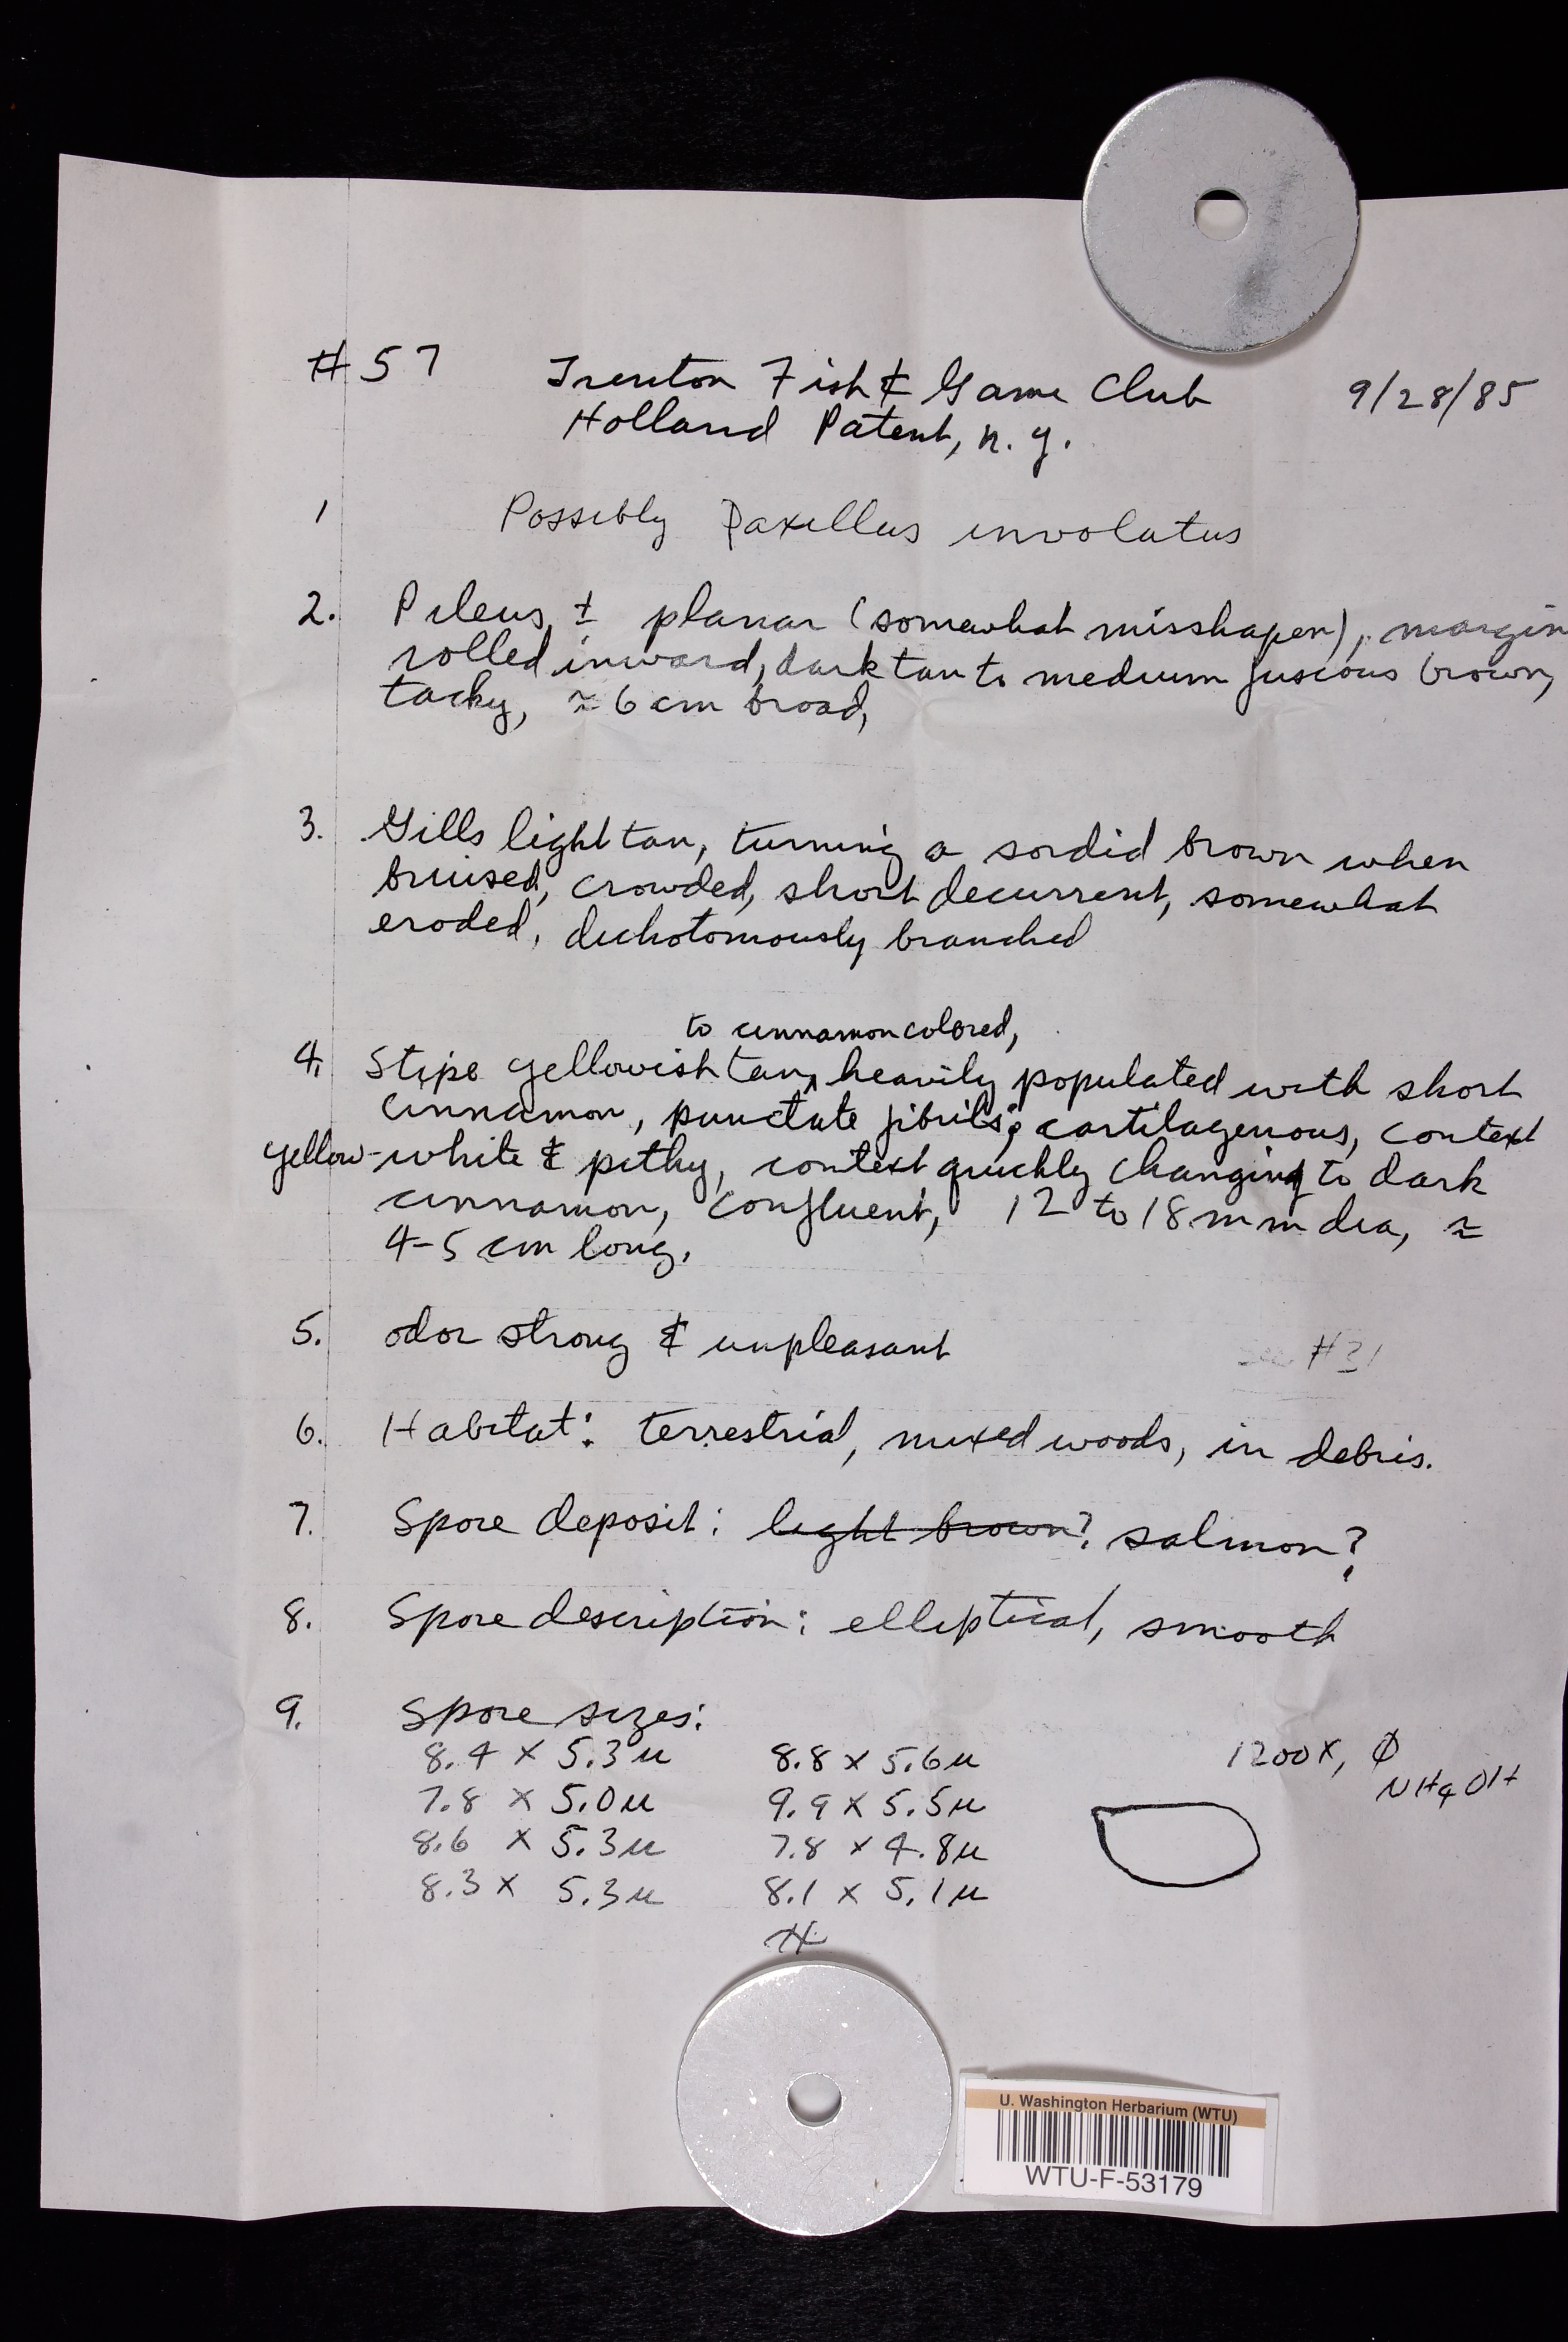 #57 Trenton Fish & Game Club 9/28/85
Holland Patent, n.y.
1 Possibly Paxillus involutus
2. Pileus, ± planar (somewhat misshapen), margin
rolled inward, dark tan to medium fuscous brown,
tacky, ≈ 6 cm broad,
3. Gills light tan, turning a sordid brown when
bruised, crowded, short decurrent, somewhat
eroded, dichotomously branched
to cinnamon colored,
4. Stipe yellowish tan, heavily populated with short
cinnamon, punctate fibrils; cartilagenous, context
yellow-white & pithy, context quickly changing to dark
cinnamon, confluent, 12 to 18 mm dia, ≈
4-5 cm long.
5. odor strong & unpleasant
see #31
6. Habitat: terrestrial, mixed woods, in debris.
7. Spore deposit: light brown? salmon?
8. Spore description: elliptical, smooth
9. Spore sizes:
8.4 x 5.3 u 8.8 x 5.6 u 1200x, φ
NH4OH
7.8 x 5.0 u 9.9 x 5.5 u
8.6 x 5.3 u 7.8 x 4.8 u
8.3 x 5.3 u 8.1 x 5.1 u
U. Washington Herbarium (WTU)
WTU-F-53179